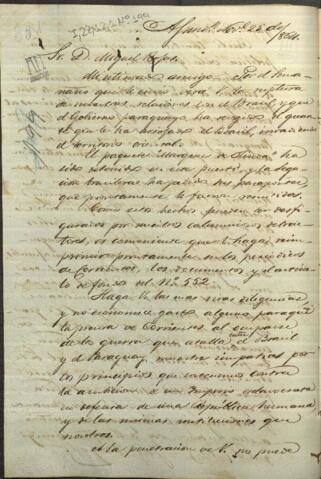 I,22,12,1 Nº 199
Asunⁿ Nov.e 25 de
1864
Sr. D. Miguel
Mi estimado amigo. Por el Sema-
nario que le envio verá V. la ruptura
de nuestras relaciones con el Brasil, y que
el Gobierno paraguayo ha recogido el guan-
te que le ha arrojado el Brasil, invadiendo
el territorio oriental.
El paquete Marques de Olinda ha
sido detenido en este puerto, y la lega-
cion brasilera ha pedido sus pasaportes
que prontamente le fueron
Como estos hechos pueden ser desfi-
gurados por
es conveniente que V. haga reim-
primir prontamente en los periodicos
de Corrientes, los documentos y el articu-
lo de fondo del Nº 552
Haga V. las mas vivas diligencias
y no economice gasto alguno para que
la prensa de Corrientes al ocuparse
de la guerra que estalla entre el Brasil
y el Paraguay, muestre simpatias por
los principios que
la ambicion de un Imperio esclavocrata
en defensa de una Republica hermana
y de las mismas instituciones que
nosotros.
A la penetracion de V. no puede